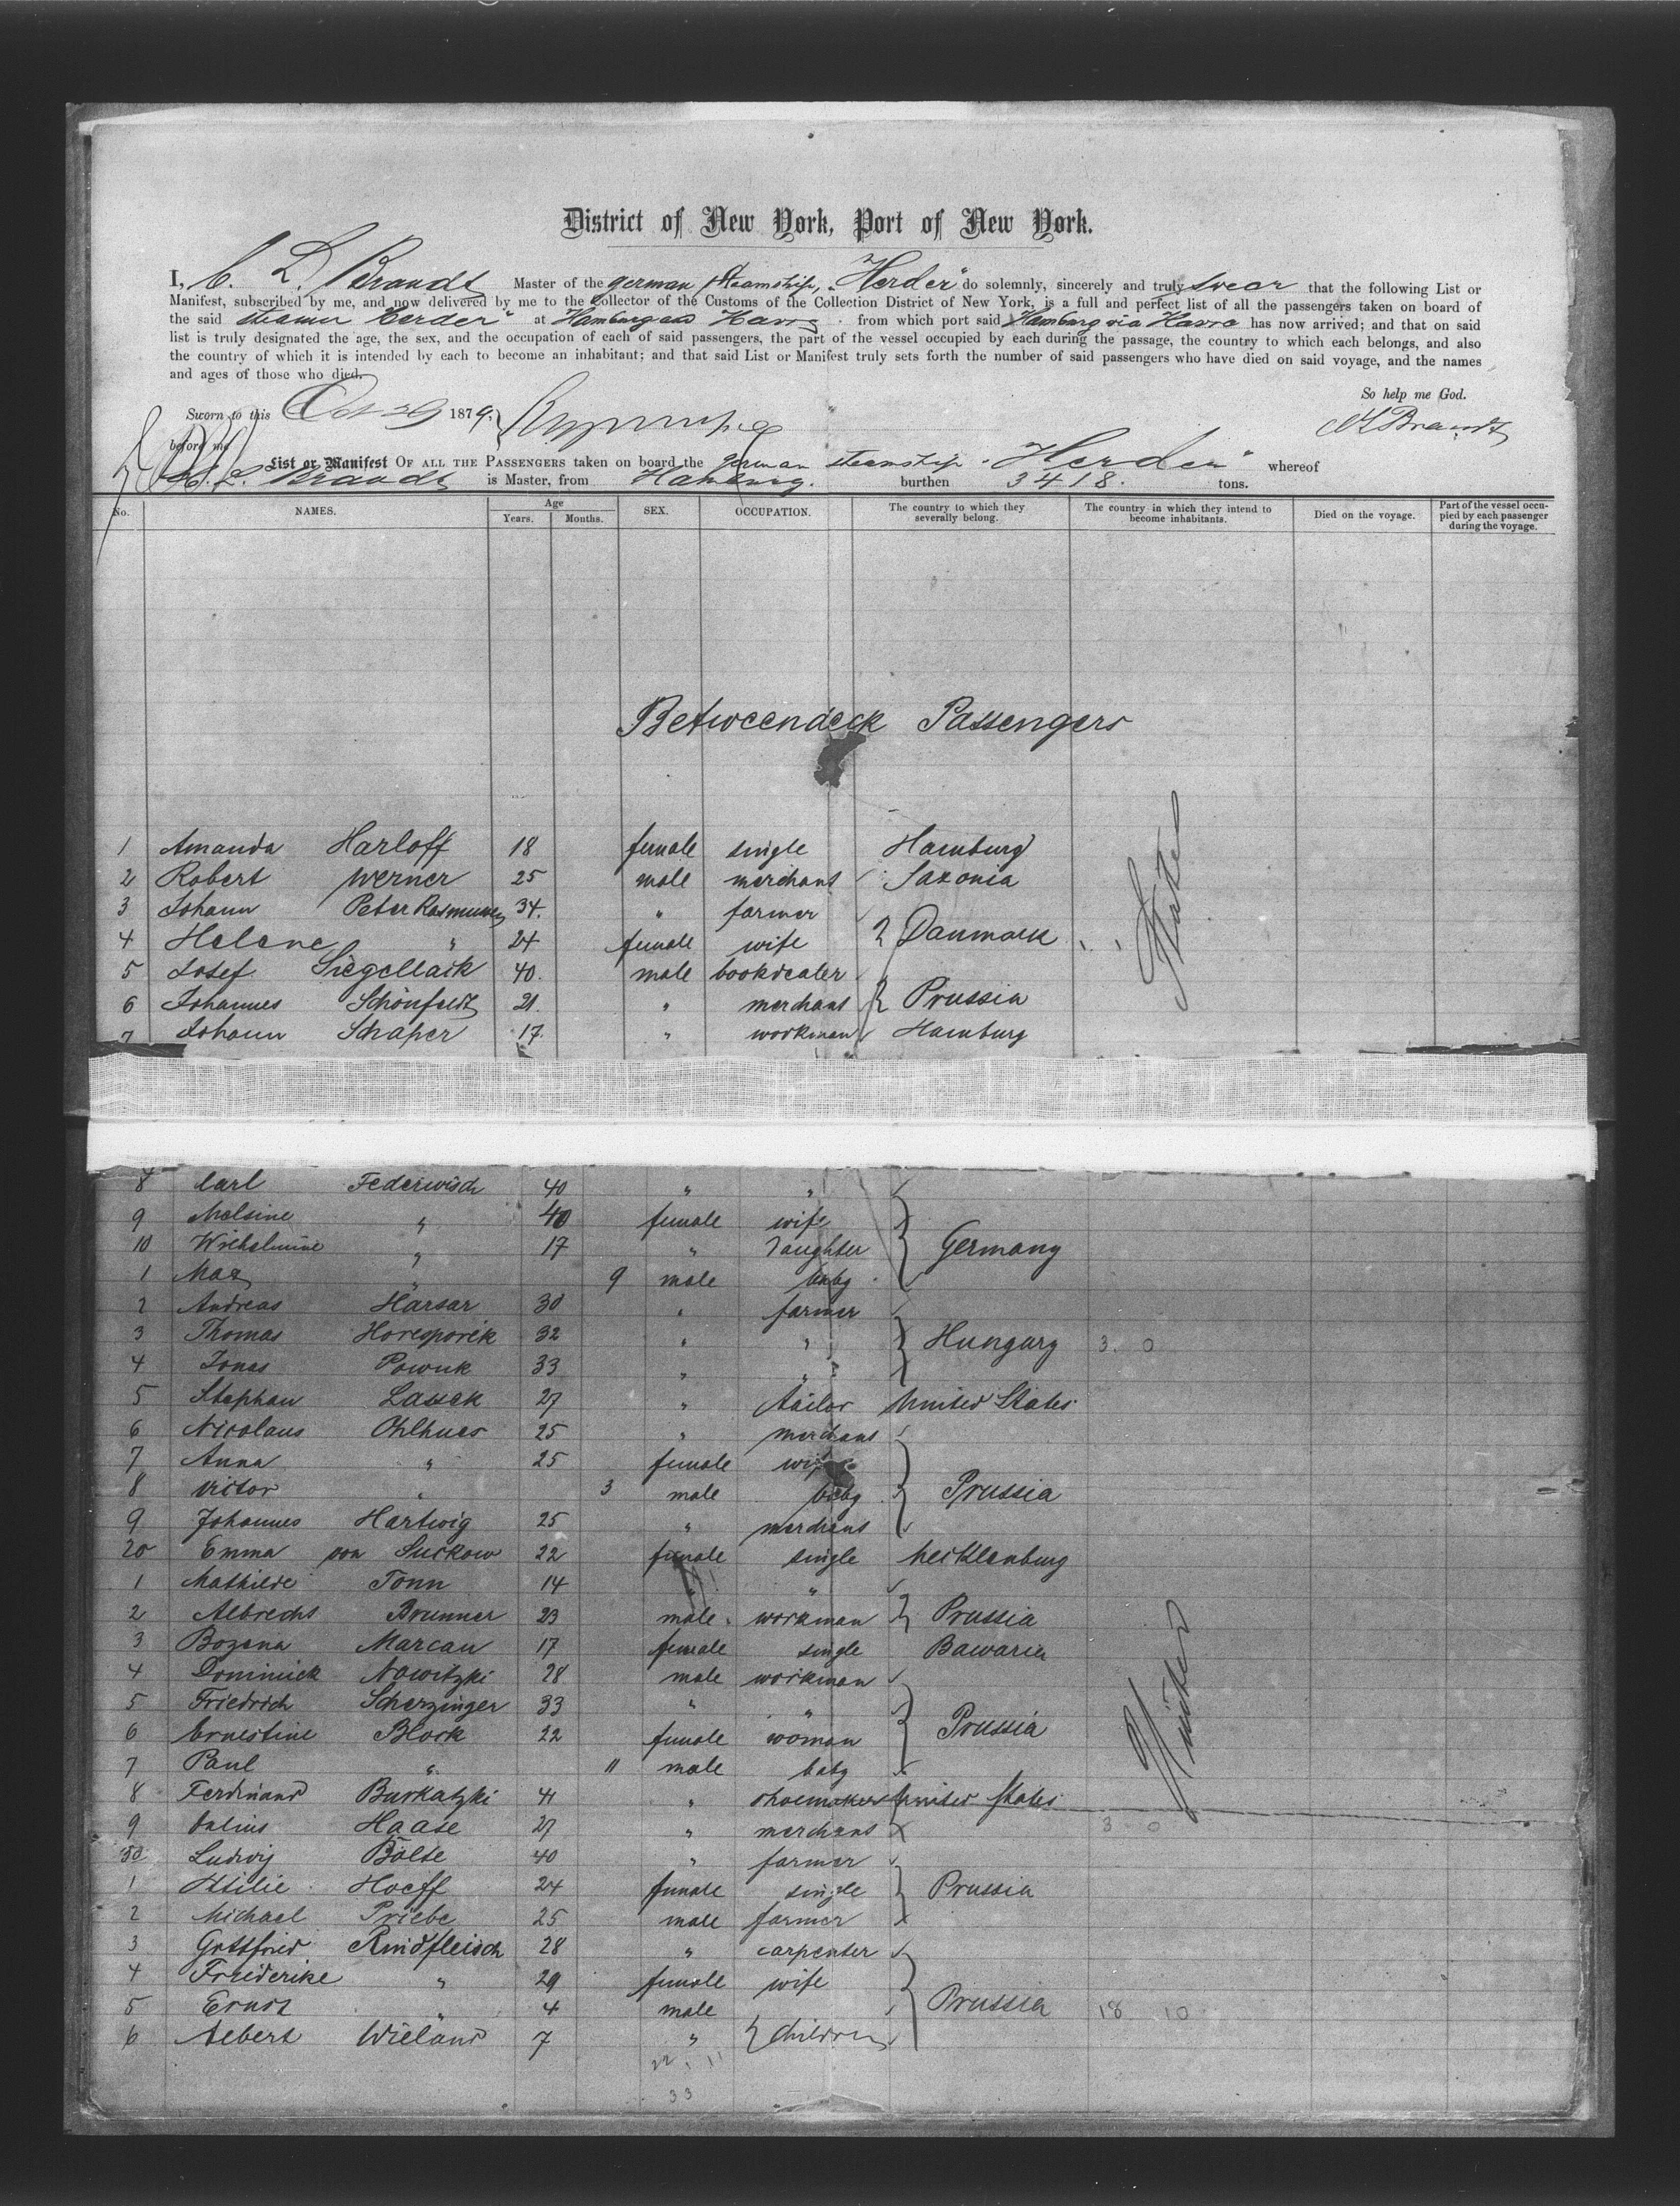 District of New York, Port of New York.
I, C. L. Brandt Master of the german steamship, "Herder" do solemnly, sincerely and truly swear that the following List or
Manifest, subscribed by me, and now delivered by me to the Collector of the Customs of the Collection District of New York, is a full and perfect list of all the passengers taken on board of
the said steamer Herder" at Hamburg and Havre from which port said Hamburg via Havre has now arrived; and that on said
list is truly designated the age, the sex, and the occupation of each of said passengers, the part of the vessel occupied by each during the passage, the country to which each belongs, and also
the country of which it is intended by each to become an inhabitant; and that said List or Manifest truly sets forth the number of said passengers who have died on said voyage, and the names
and ages of those who died.
So help me God.
Sworn to this Oct 29 1879.
Brandt
before me
List or Manifest OF ALL THE PASSENGERS taken on board the german steamship "Herder" whereof
C. L. Brandt is Master, from Hamburg. burthen 3418. tons.
No. NAMES. Age Years. Months. SEX. OCCUPATION. The country to which they severally belong. The country in which they intend to become inhabitants. Died on the voyage. Part of the vessel occupied by each passenger during the voyage.
Betweendeck Passengers
1 Amanda Harloff 18 female single Hamburg
2 Robert Werner 25 male merchant Saxonia
3 Johann Peter Rasmussen 34. " farmer
4 Helene " 24 female wife Danmark
5 Josef Siegellack 40. male bookdealer
6 Johannes Schönfeldt 21. " merchant Prussia
7 Johann Schaper 17. " workman Hamburg
States
8 Carl Federwisch 40 " "
9 Melsine " 40 female wife
10 Wilhelmine " 17 " daughter Germany
1 Max " 9 male baby
2 Andreas Harsar 30 " farmer
3 Thomas Horesporik 32 " " Hungary 3. 0
4 Jonas Powuk 33 " "
5 Stephan Lassek 27 " tailor United States
6 Nicolaus Ohlhues 25 " merchant
7 Anna " 25 female wife
8 Victor " 3 male baby Prussia
9 Johannes Hartwig 25 " merchant
20 Emma von Suckow 22 female single Mecklenburg
1 Mathilde Tonn 14 " "
2 Albrecht Brunner 23 male workman Prussia
3 Bozena Marcan 17 female single Bawaria
4 Dominick Nawitzki 28 male workman
5 Friedrich Scherzinger 33 " "
6 Ernestine Block 22 female woman Prussia
7 Paul " 11 male baby
8 Ferdinand Burkatzki 41 " shoemaker United States
9 Julius Haase 27 " merchant 3 0
30 Ludwig Bölte 40 " farmer
1 Ottilie Hoeff 24 female single Prussia
2 Michael Priebe 25 male farmer
3 Gottfried Rindfleisch 28 " carpenter
4 Friederike " 29 female wife
5 Ernst " 4 male Prussia 18 10
6 Albert Wieland 7 " children
United
22 11
33